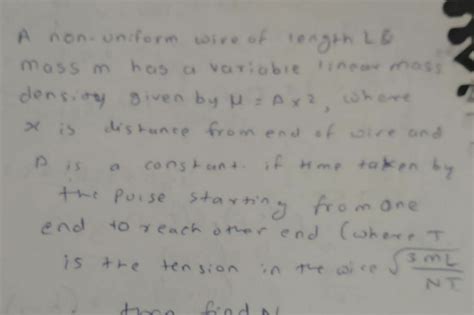 A non-uniform wire of length L &
mass m has a variable linear mass
density given by μ = Ax2, where
x is distance from end of wire and
A is a constant. if time taken by
the pulse starting from one
end to reach other end (where T
is the tension in the wire √(3mL/NT)
then find N